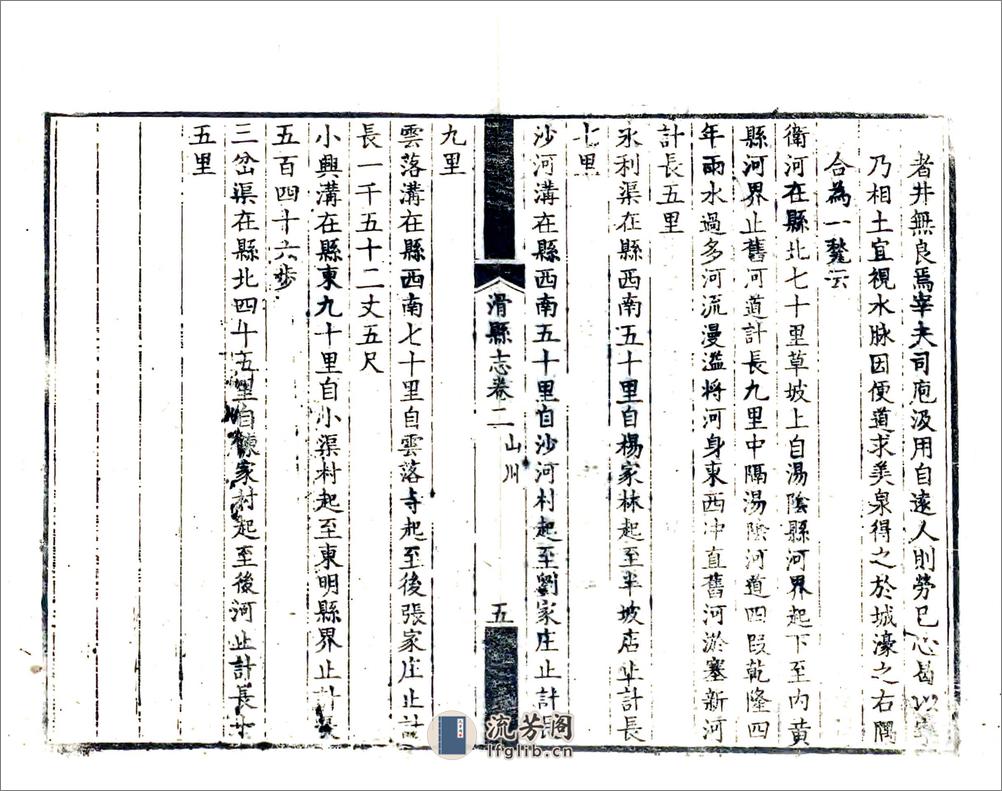 者井無良焉宰夫司庖汲用自遠人則勞已心曷以寧
乃相土宜視水脉因便道求美泉得之於城濠之右隅
合為一甃云
衛河在縣北七十里草坡上自湯陰縣河界起下至内黄
縣河界止舊河道計長九里中隔湯陰河道四叚乾隆四
年雨水過多河流漫溢将河身東西冲直舊河淤塞新河
計長五里
永利渠在縣西南五十里自楊家林起至半坡店止計長
七里
沙河溝在縣西南五十里自沙河村起至劉家庄止計長
滑縣志卷二 山川 五
九里
雲落溝在縣西南七十里自雲落寺起至後張家庄止計
長一千五十二丈五尺
小興溝在縣東九十里自小渠村起至東明縣界止計長
五百四十六步
三岔渠在縣北四十五里自家村起至後河止計長十
五里
流芳阁
lfglib.cn